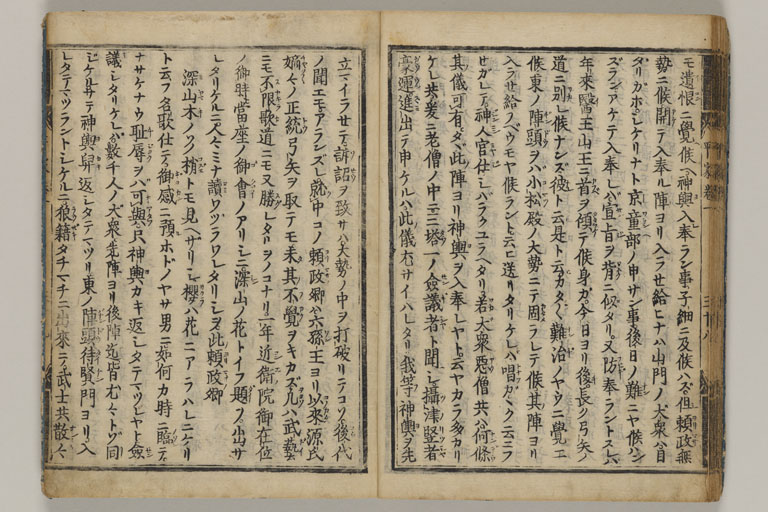 モ遺恨ニ覺候ヘ神輿入奉ラン事子細ニ及候ハズ但頼政無
勢ニ候開テ入奉ル陣ヨリ入ラセ給ヒナハ山門ノ大衆ハ目
タリガホシケリナト京童部ノ申サン事後日ノ難ニヤ候ハン
ズランアケテ入奉レバ宣旨ヲ背ニ似タリ又防奉ラントスレハ
年來醫王山王ニ首ヲ傾テ候身ガ今日ヨリ後長ク弓矢ノ
道ニ別レ候ナンズ彼ト云是ト云カタ〱難治ノヤウニ覺エ
候東ノ陣頭ヲバ小松殿ノ大勢ニテ固ラレテ候其陣ヨリ
入ラセ給ノベウモヤ候ラント云ニ送リタリケレバ唱ガカク云ニフ
セガレテ神人官仕シバラクユラヘタリ若大衆惡僧共ハ何條
其儀可有タヾ此陣ヨリ神輿ヲ入奉レヤト云ヤカラ多カリ
ケレ共爰ニ老僧ノ中ニ三塔一ノ僉議者ト聞ヘシ攝津竪者
豪運進出テ申ケルハ此儀尤サイハレタリ我等神輿ヲ先
立マイラセテ訴訟ヲ致サハ大勢ノ中ヲ打破リテコソ後代
ノ聞エモアランズレ就中コノ頼政卿ハ六孫王ヨリ以來源氏
嫡々ノ正統弓矢ヲ取テモ未其不覺ヲキカズ凡ハ武藝
ニモ不限歌道ニモ又勝レタリヲノコナリ一年近衛院御在位
ノ御時當座ノ御會ノアリシニ深山ノ花トイフ題ヲ人々
タリケルニ人々ミナ讀ワツラワレタリシヲ此頼政卿
深山木ノソノ梢トモ見ヘザリシ櫻ハ花ニアラハレニケリ
ト云フ名歌仕テ御感ニ預ホドノヤサ男ニ如何カ時ニ臨テ
ナサケナウ耻辱ヲバ可與只神輿カキ返シタテマツレヤト僉
議シタリケレバ數千人ノ大衆先陣ヨリ後陣迄皆尤々トゾ同
ジケルサテ神輿舁返シタテマツリ東ノ陣頭待賢門ヨリ入
レタテマツラントシケルニ狼籍タチマチニ出來テ武士共散々
平家卷一